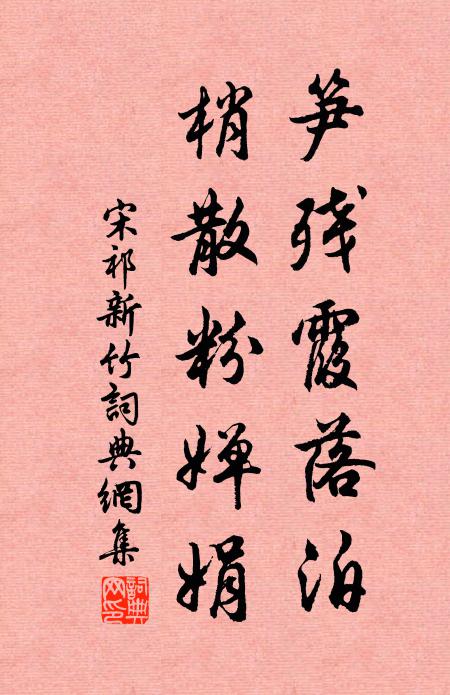 笋残霞落泊
梢散粉婵娟
宋祁新竹詞典網集
詞典網印